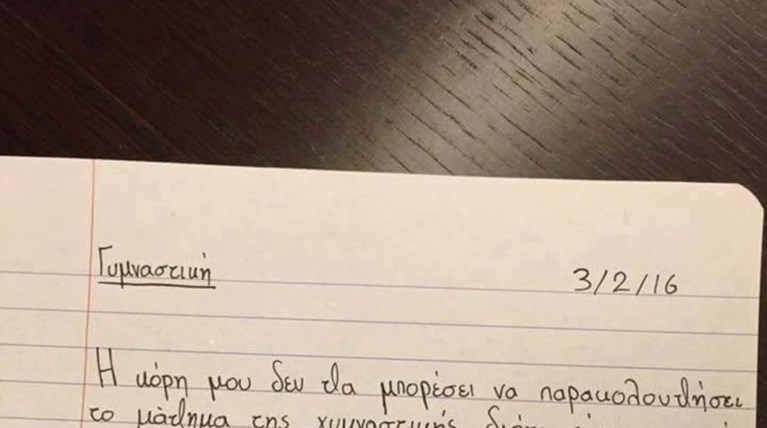 Γυμναστική
3/2/16
Η κόρη μου δεν θα μπορέσει να παρακολουθήσει
το μάθημα της γυμναστικής